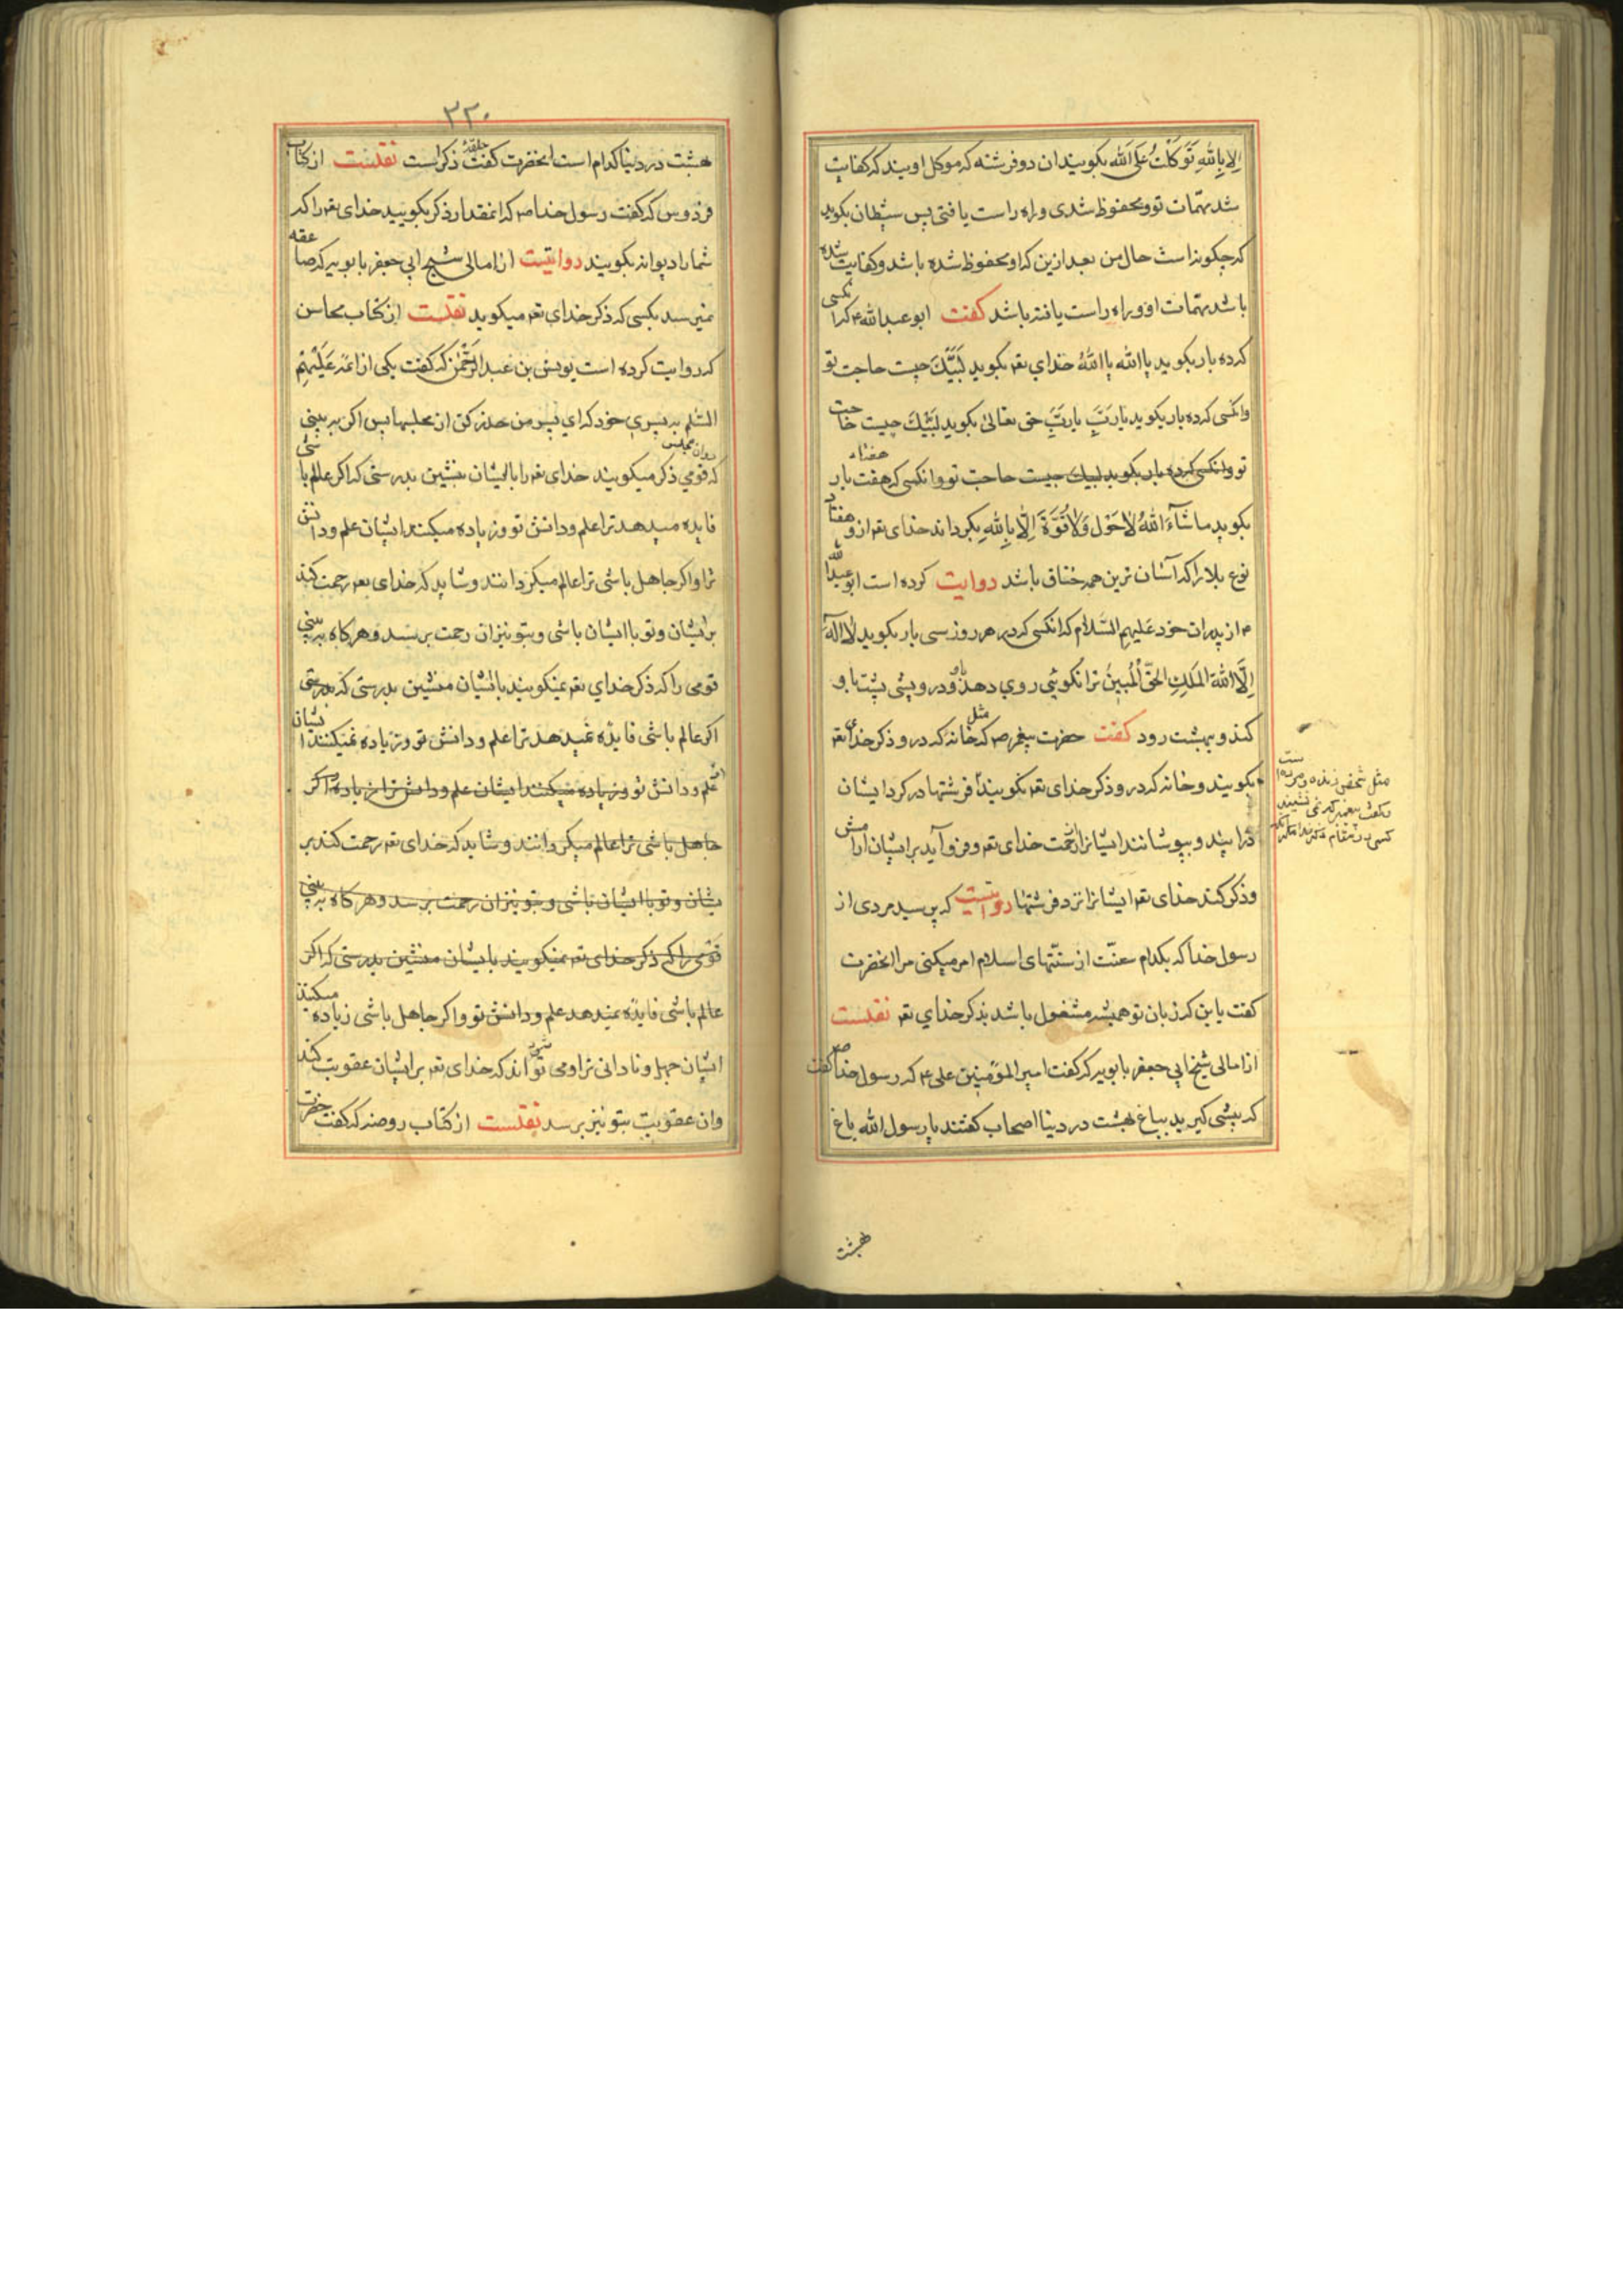 الا بالله توکلت علی الله بکویند ان دو فرشته که موکل اویند که کفایت
شد مهمّات تو و محفوظ شدی و راه راست یافتی پس شیطان بکوید
که چکونه است حال من بعد ازین که او محفوظ شده باشد و کفایت شده
باشد مهمّات او و راه راست یافته باشد کفت ابو عبدالله ع که انکسی
که ده بار بکوید یا الله یا الله خدای تعه بکوید لَبَّیْكَ چیست حاجت تو
و انکسی که ده بار بکوید یا رَبِّ یا رَبِّ حق تعالی بکوید لَبَّیْكَ چیست حاجت
تو و انکسی که ده بار بکوید لبیك چیست حاجت تو و انکسی که هفت بار
هفتاد
بکوید ما شآءَ اللهُ لا حَوْلَ وَلا قُوَّةَ اِلّا بِاللهِ بکرداند خدای تعه ازو هفتاد
نوع بلا را که آسان ترین همه خناق باشد روایت کرده است ابو عبدالله
ع از پدران خود عَلیهِم السَّلام که انکسی که در هر روز سی بار بکوید لا اله
اِلَّا اللهُ المَلِكِ الحَقّ الْمُبینُ توانکری روی دهد باو و درویشی پشت باو
کند و ببهشت رود کفت حضرت پیغمبر صه که مثل خانه که درو ذکر خدای تعه
بکویند و خانه که درو ذکر خدای تعه نکویند فرشتها در کرد ایشان
درایند و بپوشانند ایشانرا از رحمت خدای تعه و فرو آید بر ایشان ارامش
و ذکر کند خدای تعه ایشانرا نزد فرشتها روایتست که پرسید مردی از
رسول خدا که بکدام سنّت از سنّتهای اسلام امر میکنی مرا انحضرت
کفت باین که زبان تو همیشه مشغول باشد بذکر خدای تعه نقلست
از امالی شیخ ابی جعفر بابویه که کفت امیر المؤمنین علی ع که رسول خدا صه کفت
که پیشی کیرید بباغ بهشت در دنیا اصحاب کفتند یا رسول الله باغ
بهشت
مثل شخص زنده و مرده است
و کفت پیغمبر که نمی نشیند
٣٣٠
بهشت در دنیا کدام است انحضرت کفت حلقهٔ ذکر است نقلست از کتاب
فردوس که کفت رسول خدا صه که انمقدار ذکر بکویید خدای تعه را که
شما را دیوانه بکویند روایتیست از امالی شیخ ابی جعفر بابویه که صاعقه
نمیرسد بکسی که ذکر خدای تعه میکوید نقلست از کتاب محاسن
که روایت کرده است یونس بن عبد الرَّحمٰن که کفت یکی از ائمه عَلَیْهِم
السّلم به پسری خود که ای پسر من حذر کن از مجلسها پس اکر به بینی
که قومی ذکر میکویند خدای تعه را با ایشان بنشین بدرستی که اکر عالم باشی
در ان مجلس
فایده میدهد ترا علم و دانش تو و زیاده میکنند ایشان علم و دانش
ترا و اکر جاهل باشی ترا عالم میکردانند و شاید که خدای تعه رحمت کند
بر ایشان و تو با ایشان باشی و بتو نیز ان رحمت برسد و هر کاه به بینی
قومی را که ذکر خدای تعه نمیکویند با ایشان منشین بدرستی که بدرستی
اکر عالم باشی فایده نمیدهد ترا علم و دانش تو و زیاده نمیکنند ایشان
علم و دانش تو و زیاده میکنند ایشان علم و دانش ترا زیاده و اکر
جاهل باشی ترا عالم میکردانند و شاید که خدای تعه رحمت کند بر
یشان و تو با ایشان باشی و بتو نیز ان رحمت برسد و هر کاه به بینی
قومی را که ذکر خدای تعه نمیکویند با ایشان منشین بدرستی که اکر
عالم باشی فایده نمیدهد علم و دانش تو و اکر جاهل باشی زیاده میکنند
ایشان جهل و نادانی ترا و می تواند که خدای تعه بر ایشان عقوبت کند
و ان عقوبت بتو نیز برسد نقلست از کتاب روضه که کفت حضرت